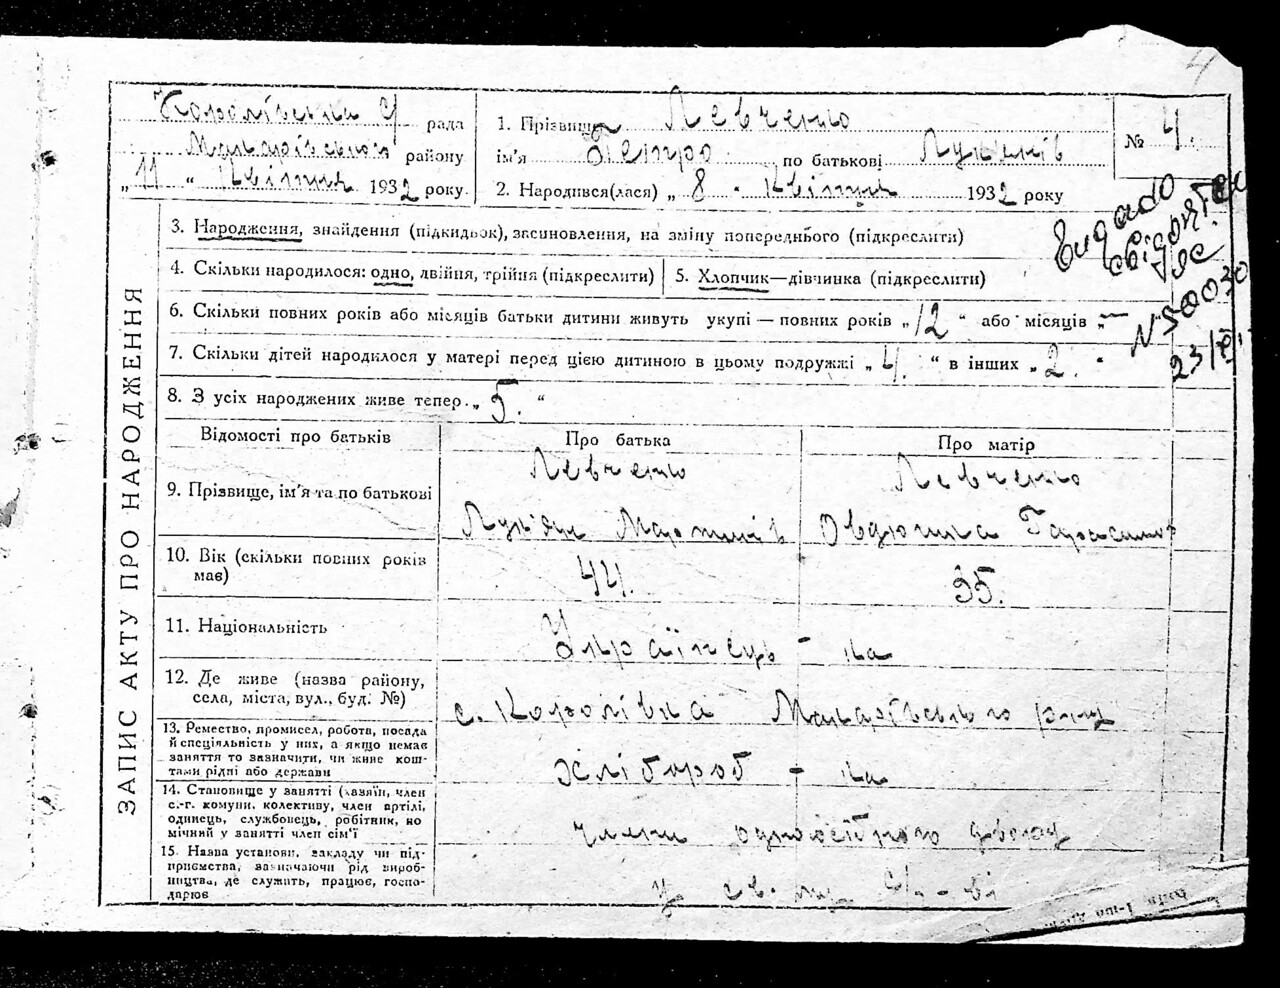 4
Королівська с/
рада
Макарівського району
„11“ Квітня 1932 року.
1. Прізвище Левченко
ім'я Петро по батькові Лукянів
2. Народився(лася) „8“ Квітня 1932 року
№ 4.
Видано
свідоцтво
ЯЄ
N 50030
23/
ЗАПИС АКТУ ПРО НАРОДЖЕННЯ
3. Народження, знайдення (підкидьок), засиновлення, на зміну попереднього (підкреслити)
4. Скільки народилося: одно, двійня, трійня (підкреслити)
5. Хлопчик—дівчинка (підкреслити)
6. Скільки повних років або місяців батьки дитини живуть укупі — повних років „12“ або місяців „—
7. Скільки дітей народилося у матері перед цією дитиною в цьому подружжі „4.“ в інших „2.“
8. З усіх народжених живе тепер „5.“
Відомості про батьків
Про батька
Про матір
9. Прізвище, ім'я та по батькові
Левченко
Лук'ян Мартинів
Левченко
Овдюшка Тарасимов
10. Вік (скільки повних років
має)
44.
35.
11. Національність
Українець - ка
12. Де живе (назва району,
села, міста, вул., буд. №)
с. Королівка Макарівського р-ну
13. Ремество, промисел, робота, посада
й спеціяльність у них, а якщо немає
заняття то зазначити, чи живе кош-
тами рідні або держави
хлібороб - ка
14. Становище у занятті (хазяїн, член
с.-г. комуни, колективу, член артілі,
одинець, службовець, робітник, по
мічний у занятті член сім'ї
члени одноосібного двору
15. Назва установи, закладу чи під-
приємства, зазначаючи рід вироб-
ництва, де служить, працює, госпо-
дарює
у св. г-ві